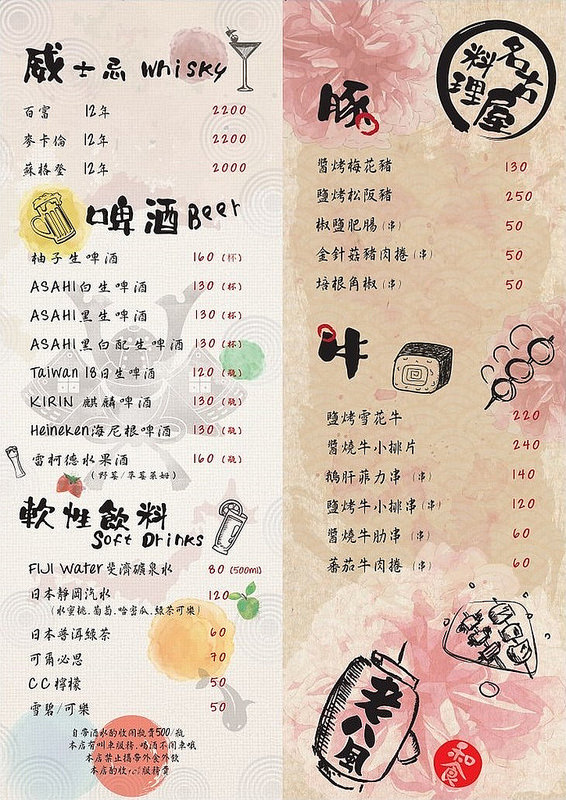 威士忌 Whisky
百富 12年 2200
麥卡倫 12年 2200
蘇格登 12年 2000
啤酒 Beer
柚子生啤酒 160 (杯)
ASAHI白生啤酒 130 (杯)
ASAHI黑生啤酒 130 (杯)
ASAHI黑白配生啤酒 130 (杯)
Taiwan 18日生啤酒 120 (瓶)
KIRIN 麒麟啤酒 130 (瓶)
Heineken海尼根啤酒 130 (瓶)
雷柯德水果酒 160 (瓶)
(野莓/草莓萊姆)
軟性飲料
Soft Drinks
FIJI Water斐濟礦泉水 80 (500ml)
日本靜岡汽水 120
(水蜜桃.葡萄.哈密瓜.綠茶可樂)
日本普洱綠茶 60
可爾必思 70
CC檸檬 50
雪碧/可樂 50
自帶酒水酌收開瓶費500/瓶
本店有叫車服務.喝酒不開車哦
本店禁止攜帶外食外飲
本店酌收10%服務費
名古屋料理
豚
醬烤梅花豬 130
鹽烤松阪豬 250
椒鹽肥腸(串) 50
金針菇豬肉捲(串) 50
培根角椒(串) 50
牛
鹽烤雪花牛 220
醬燒牛小排片 240
鵝肝菲力串(串) 140
鹽烤牛小排串(串) 120
醬燒牛肋串(串) 60
蕃茄牛肉捲(串) 60
老八風
和食